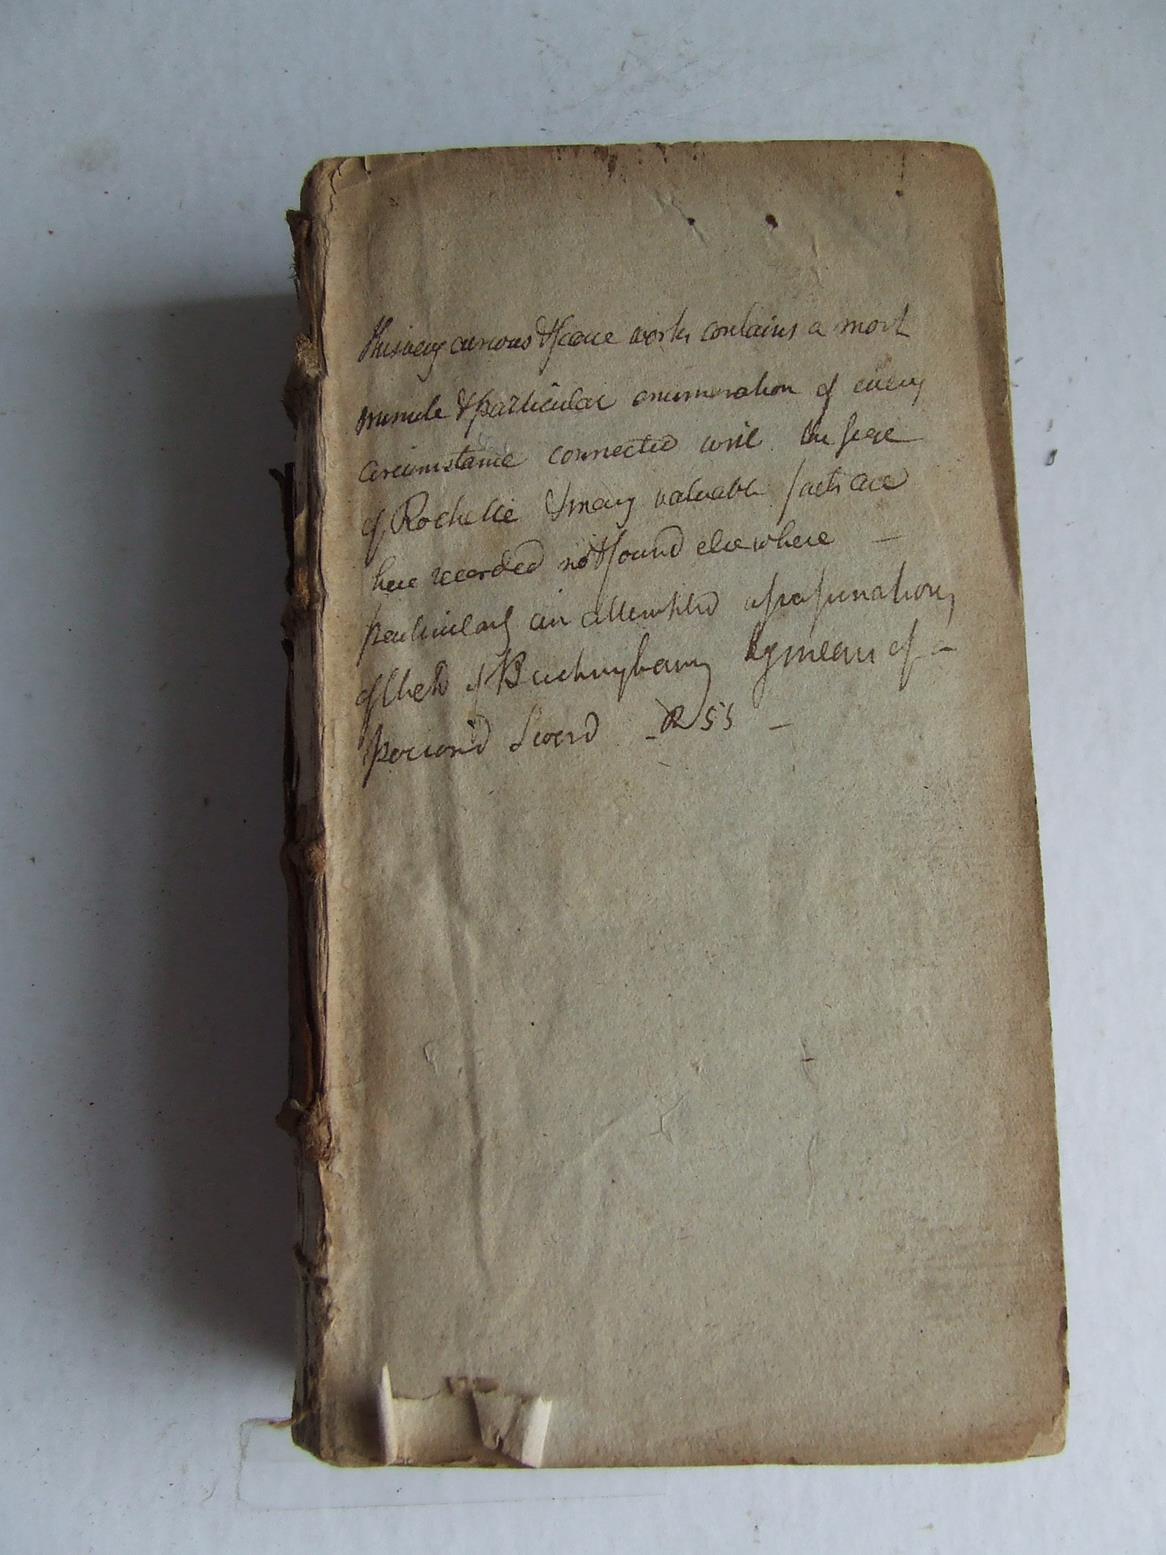 This very curious & scarce work contains a most
minute & particular enumeration of every
circumstance connected with the siege
of Rochelle & many valuable facts are
here recorded not found elsewhere –
particularly an attempted assassination,
of the D of Buckingham, by mean of –
poison'd Sword